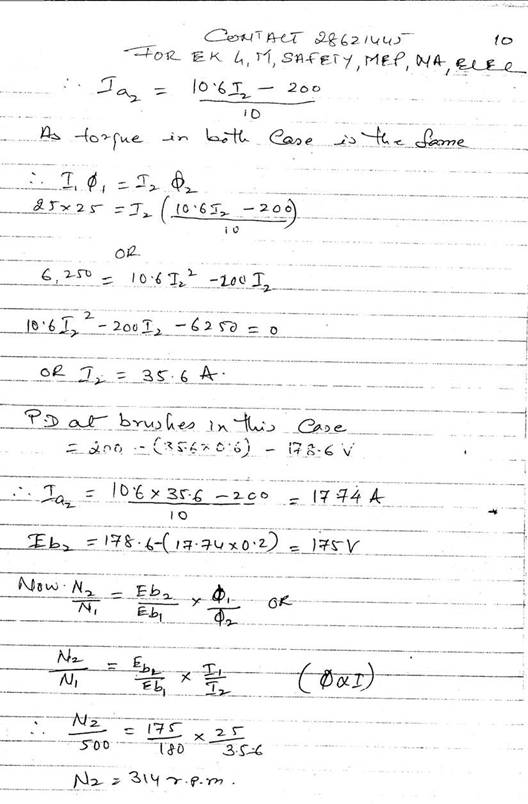 CONTACT 28621445 10
FOR EK 4, M, SAFETY, MEP, NA, ELEC
∴ Ia2 = 10.6I2 - 200
10
As torque in both Case is the Same
∴ I1 Φ1 = I2 Φ2
25×25 = I2 (10.6I2 - 200)
10
OR
6,250 = 10.6 I2² - 200 I2
10.6 I2² - 200 I2 - 6250 = 0
OR I2 = 35.6 A.
P.D at brushes in this Case
= 200 - (35.6×0.6) - 178.6 V
∴ Ia2 = 10.6 × 35.6 - 200 = 17.74 A
10
Eb2 = 178.6-(17.74×0.2) = 175V
Now. N2/N1 = Eb2/Eb1 × Φ1/Φ2 OR
N2/N1 = Eb2/Eb1 × I1/I2 (Φ∝I)
∴ N2/500 = 175/180 × 25/35.6
N2 = 314 r.p.m.